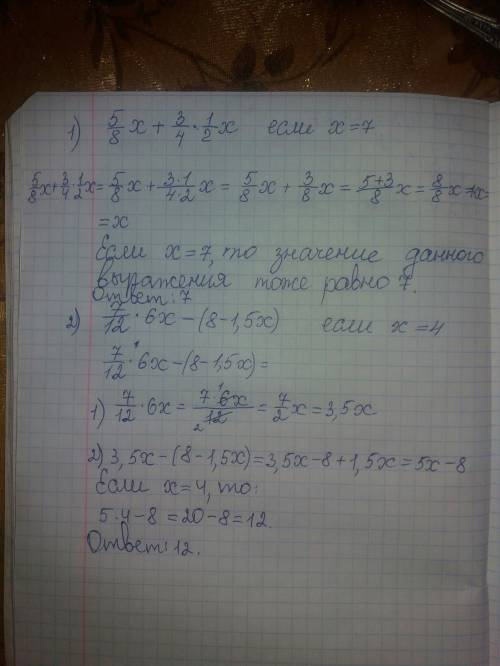 1) 5/8 x + 3/4 · 1/2 x если x = 7
5/8 x + 3/4 · 1/2 x = 5/8 x + 3·1/4·2 x = 5/8 x + 3/8 x = 5+3/8 x = 8/8 x = 1x
= x
Если x = 7, то значение данного
выражения тоже равно 7.
Ответ: 7
2) 7/12 · 6x - (8 - 1,5x) если x = 4
7/12 · 6x - (8 - 1,5x) =
1) 7/12 · 6x = 7·6x/12 = 7/2 x = 3,5x
2) 3,5x - (8 - 1,5x) = 3,5x - 8 + 1,5x = 5x - 8
Если x = 4, то:
5·4 - 8 = 20 - 8 = 12.
Ответ: 12.